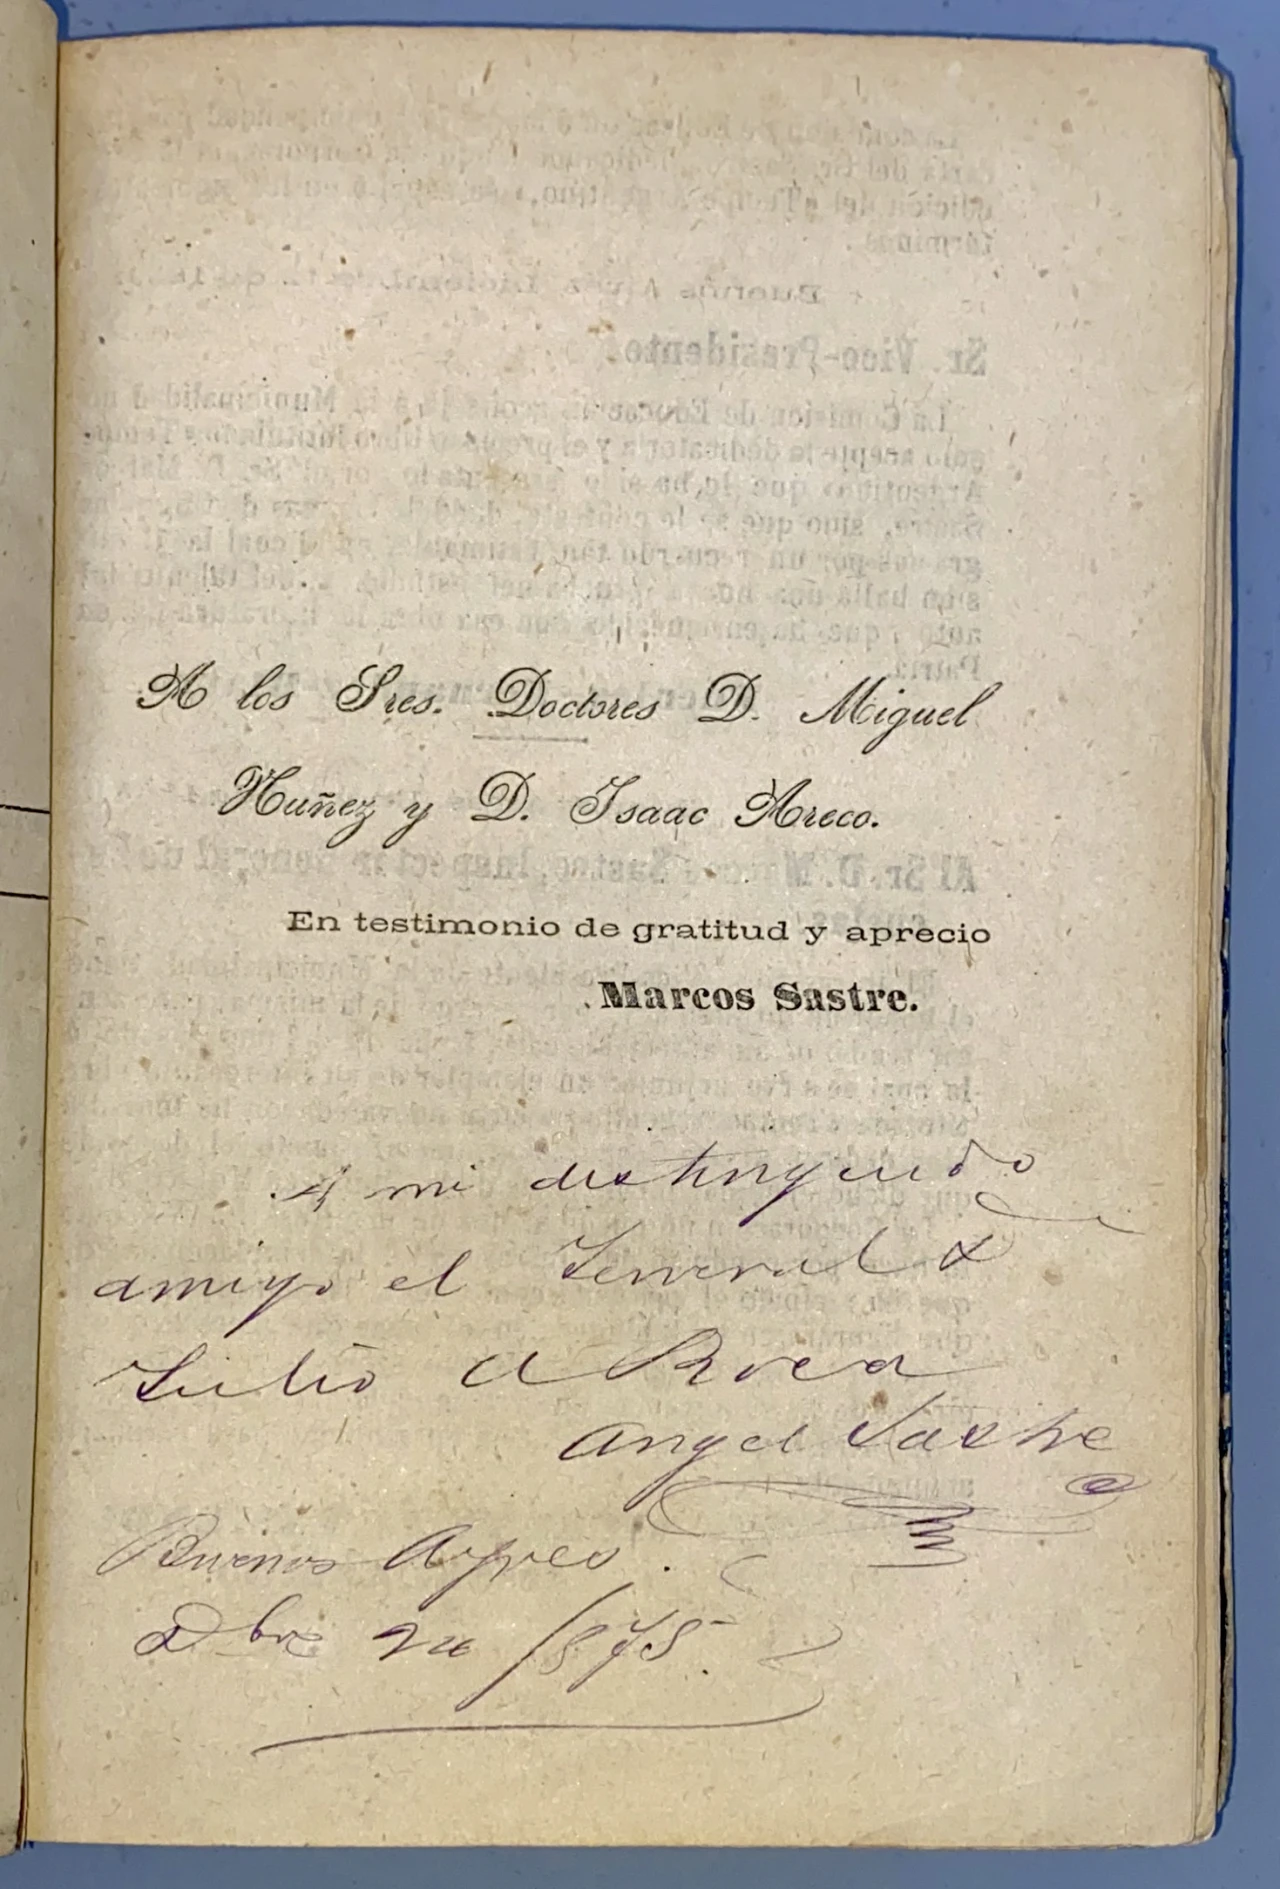 A los Sres. Doctores D. Miguel
Nuñez y D. Isaac Areco.
En testimonio de gratitud y aprecio
Marcos Sastre.
A mi distinguido
amigo el General D
Julio A Roca
Angel Sastre
Buenos Ayres.
Dbre 24/875.